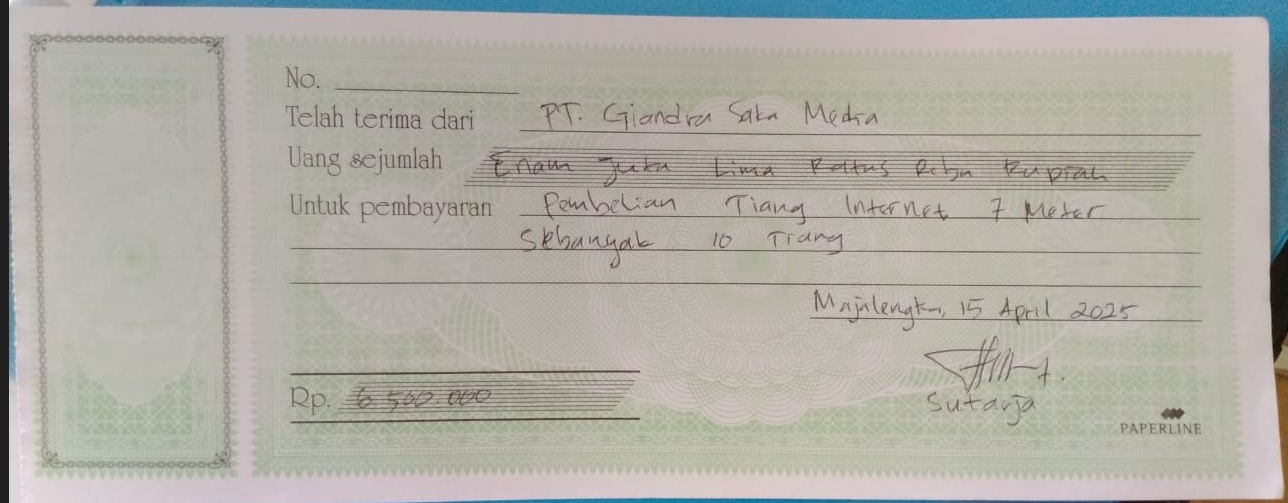 No.
Telah terima dari PT. Giandra Saka Media
Uang sejumlah Enam Juta Lima Ratus Ribu Rupiah
Untuk pembayaran Pembelian Tiang Internet 7 Meter
Sebanyak 10 Tiang
Majalengka, 15 April 2025
Rp. 6 500.000
Sutarja
PAPERLINE